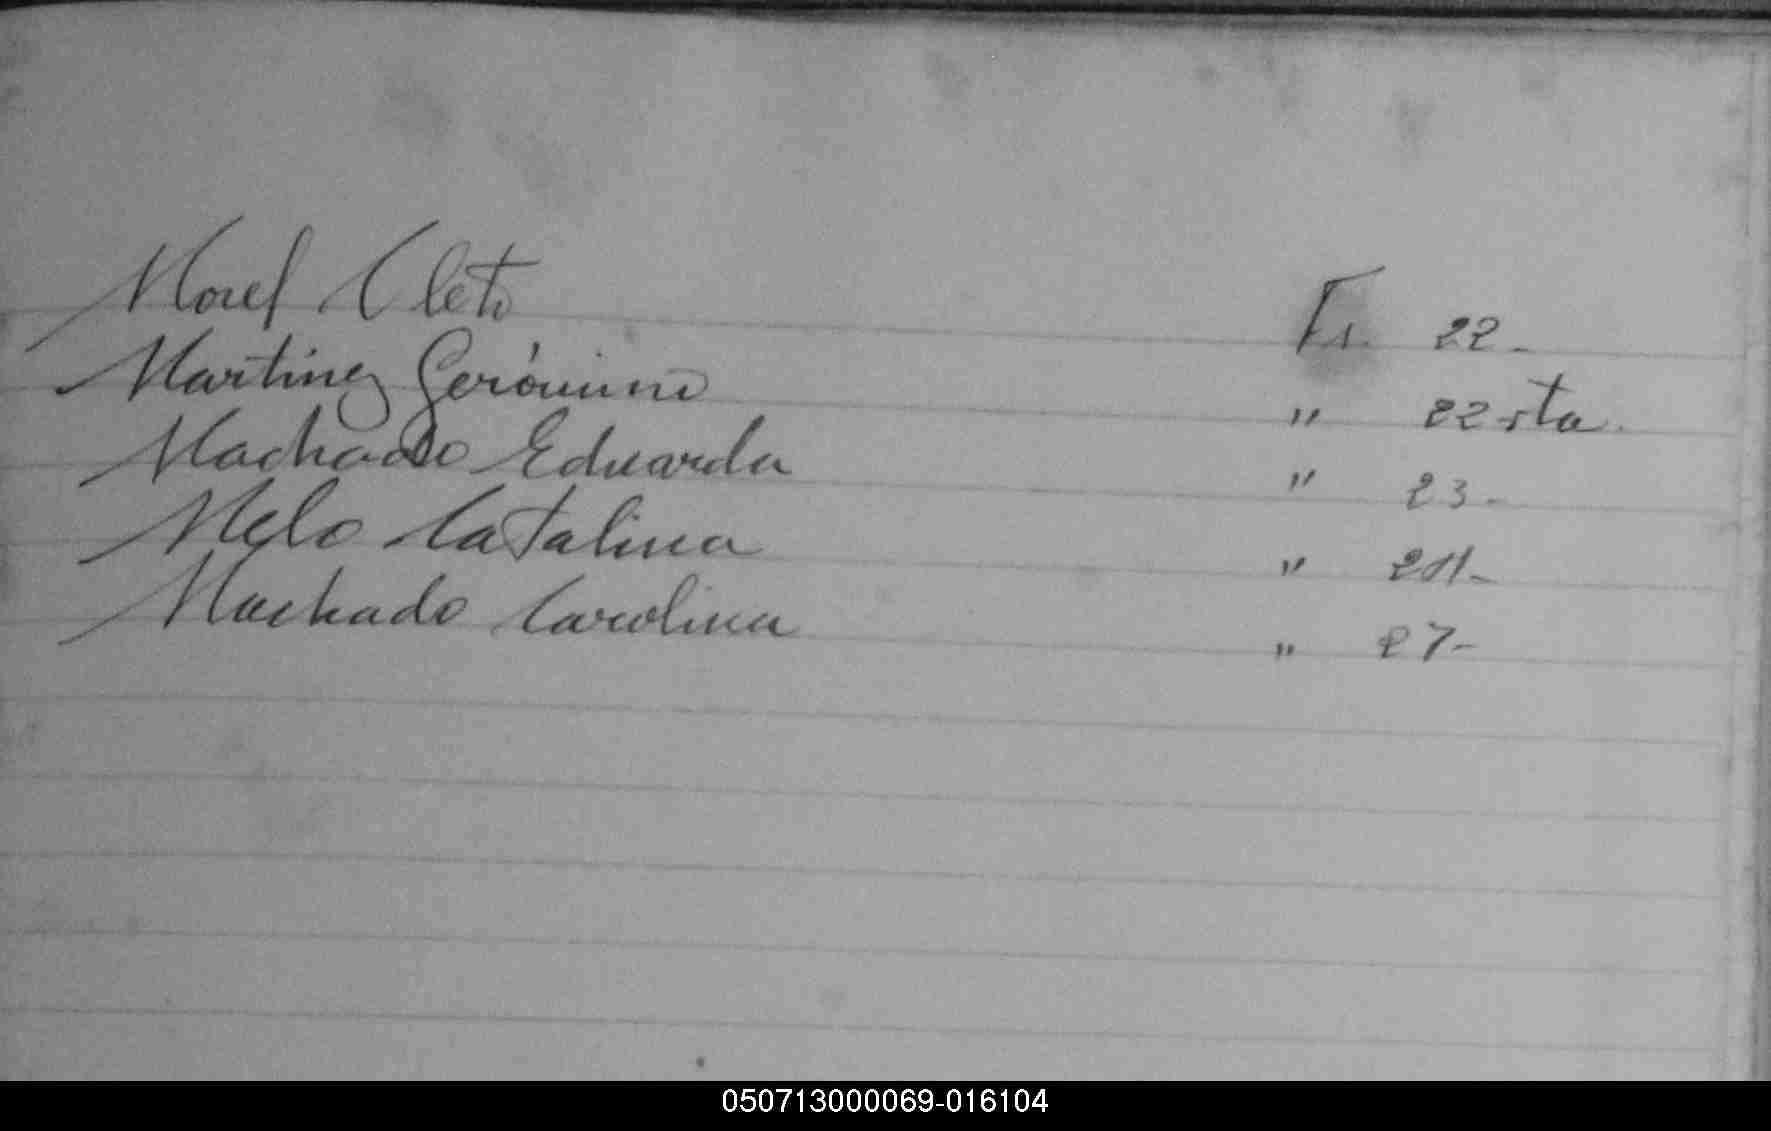 Morel Cleto Fs. 22-
Martinez Gerónimo " 22 vta.
Machado Eduarda " 23-
Melo Catalina " 24-
Machado Carolina " 27-
050713000069-016104